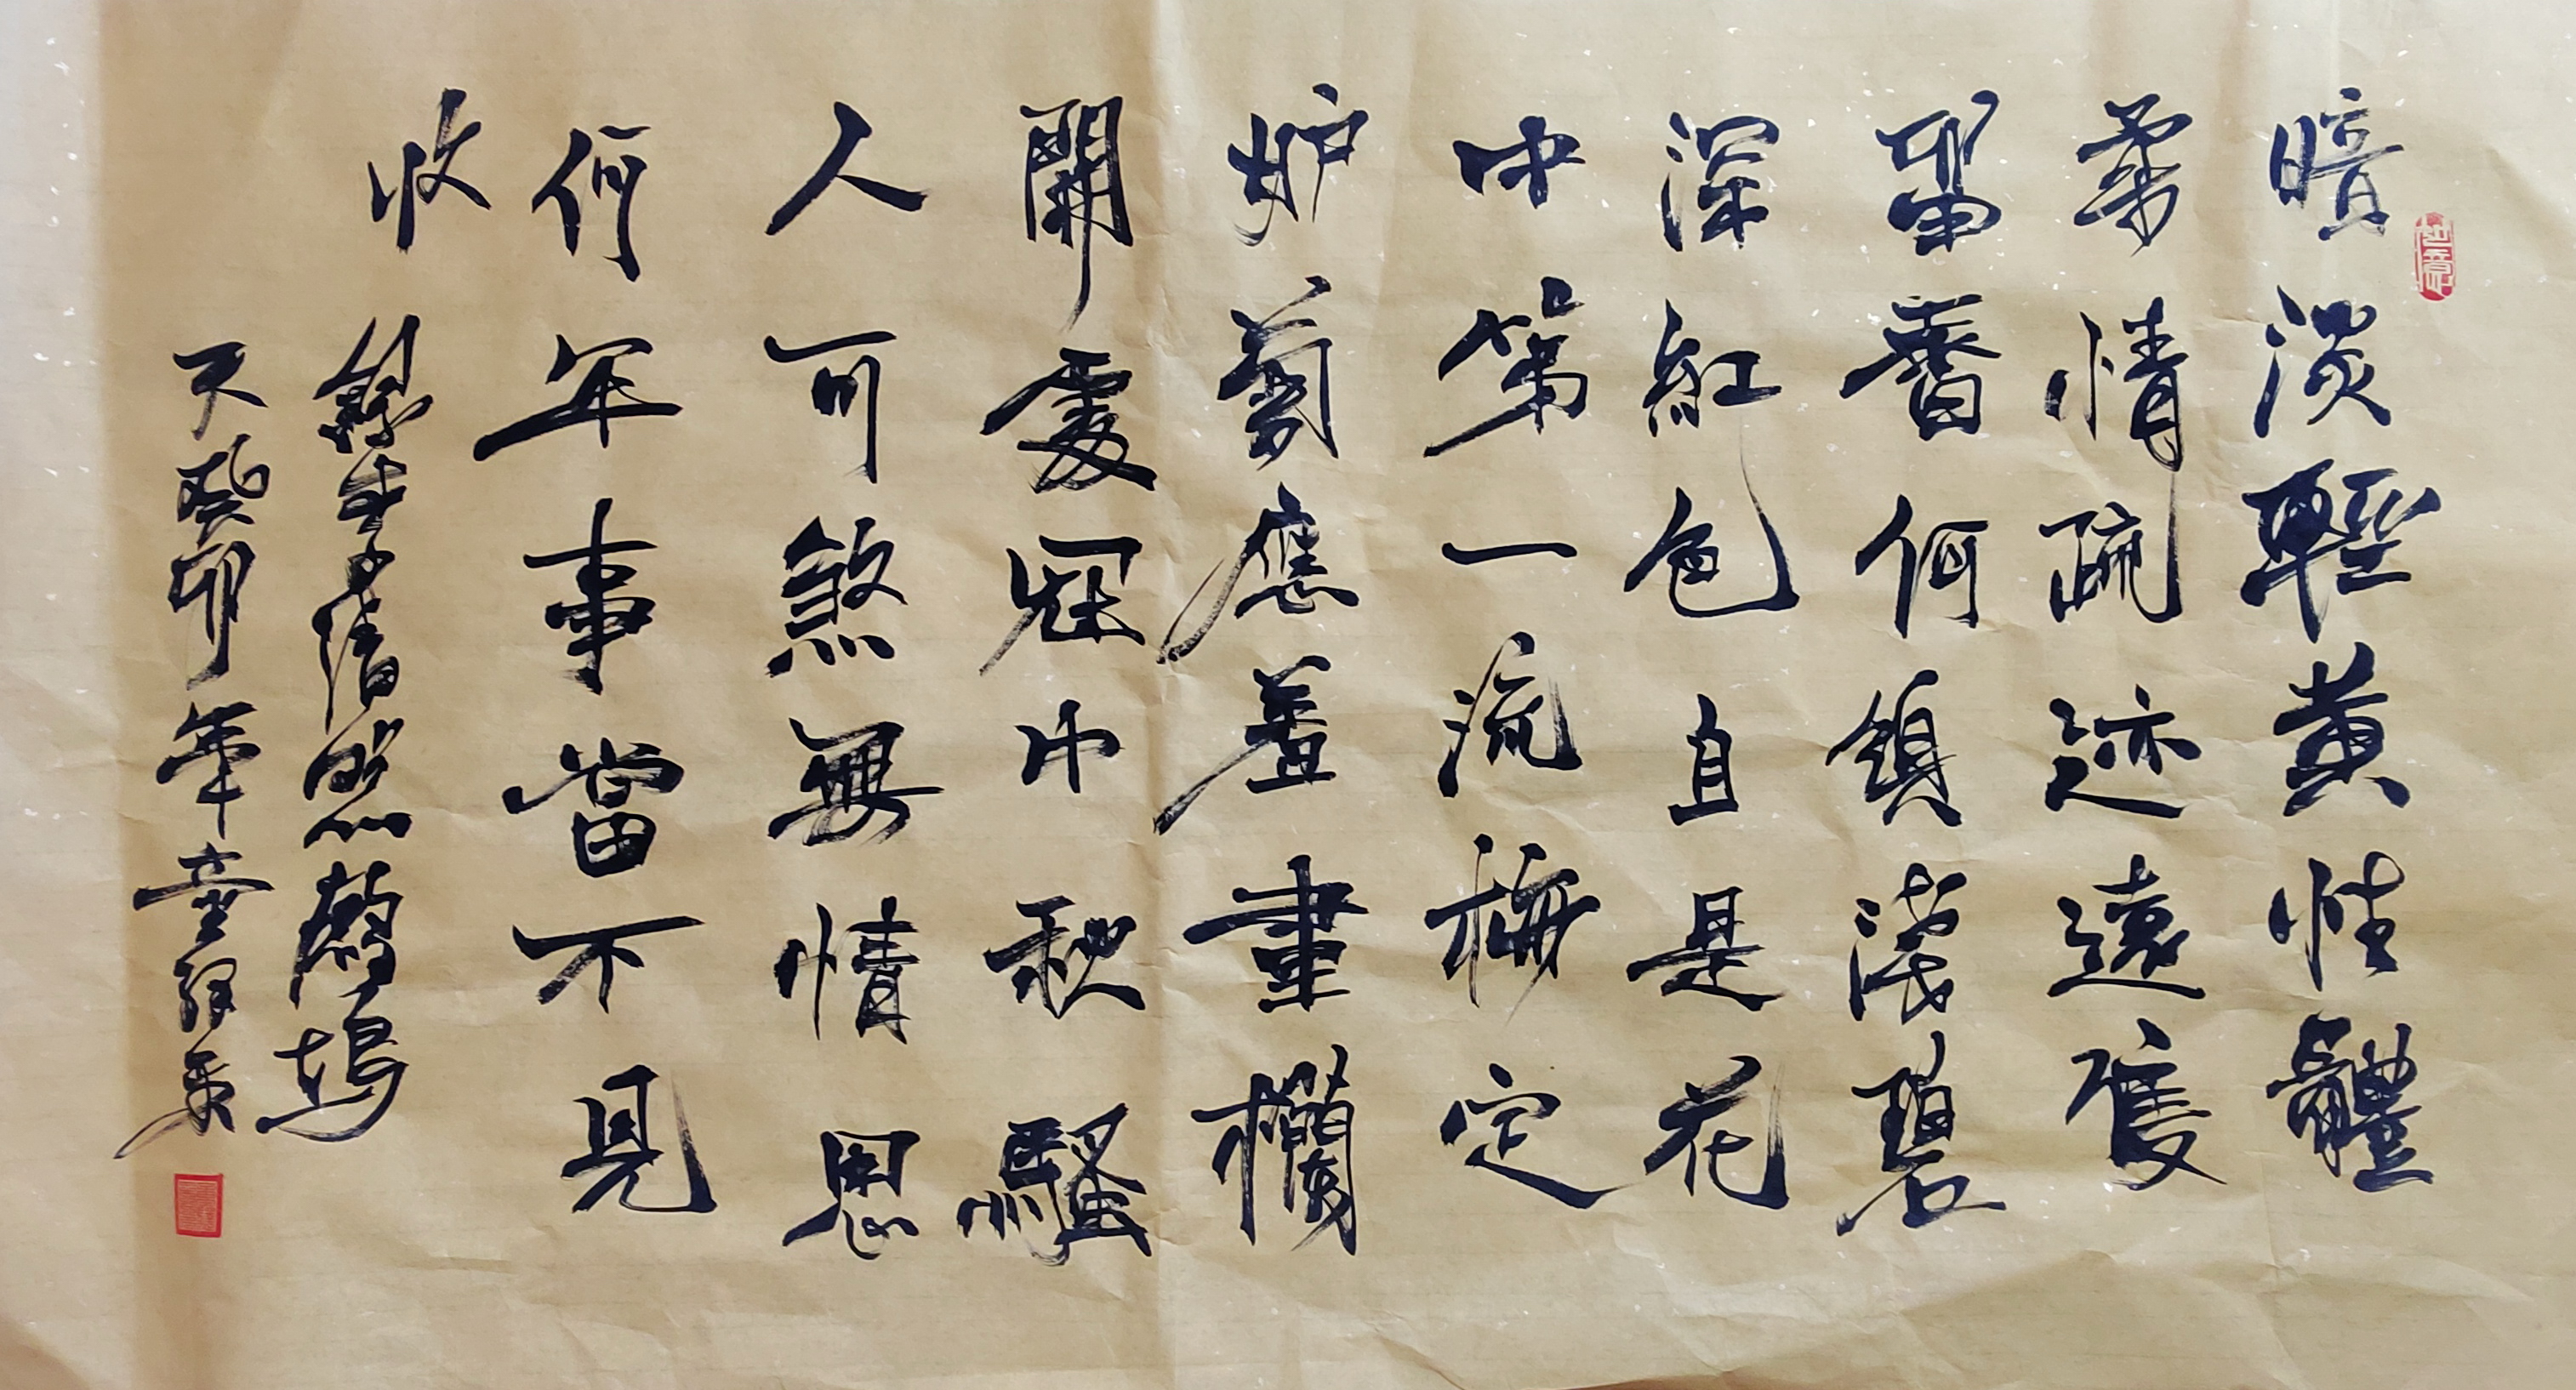 如意
暗淡輕黄性體
柔情疏迹遠隻
留香何須淺碧
深紅色自是花
中第一流梅定
妒菊應羞畫欄
開處冠中秋騷
人可煞無情思
何年事當不見
收
錄李清照鷓鴣
天癸卯年童